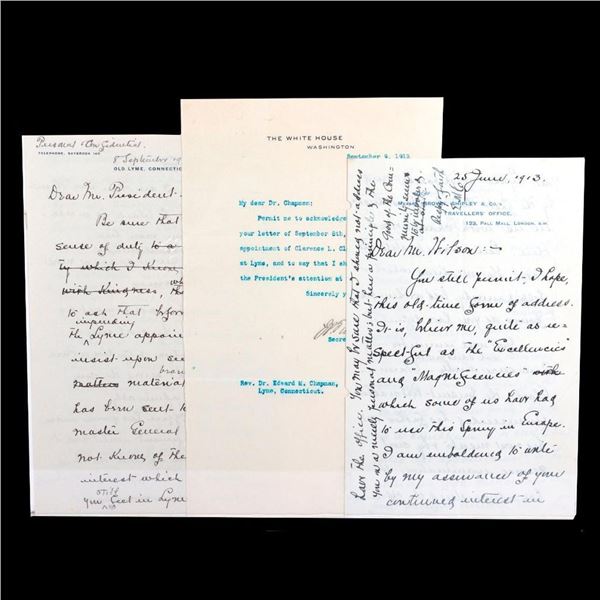 Personal Confidential
TELEPHONE, SAYBROOK
8 September 19
OLD LYME, CONNECTIC
Dear Mr. President
Be sure that
sense of duty to a
ty which I know,
with kindness, th
to ask that befor
impending
the Lyme appoin
insist upon see
material
has been sent to
master General
not know of the
interest which
still
you feel in Lyme
THE WHITE HOUSE
WASHINGTON
September 9, 1913
My dear Dr. Chapman:
Permit me to acknowled
your letter of September 8th,
appointment of Clarence L. Cl
at Lyme, and to say that I sh
the President's attention at
Sincerely y
Secre
Rev. Dr. Edward M. Chapman,
Lyme, Connecticut.
25 June, 1913.
BROWN, SHIPLEY & CO.
TRAVELLERS' OFFICE,
123, PALL MALL, LONDON, S.W.
Dear Mr. Wilson:-
You still permit, I hope,
this old-time form of address.
It is, believe me, quite as re-
spectful as the "Excellencies"
and "Magnificencies"
which some of us have had
to use this Spring in Europe.
I am emboldened to write
by my assurance of your
continued interest in
have the office. You may be sure that I should not address
you on a merely personal matter; but here a principle of the